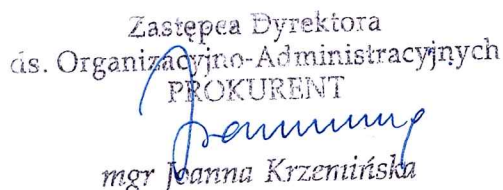 Zastępca Dyrektora
ds. Organizacyjno-Administracyjnych
PROKURENT
mgr Joanna Krzemińska